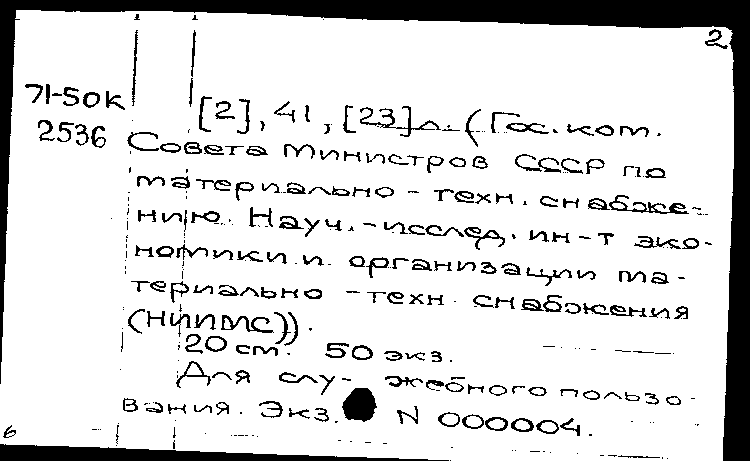 2
71-50к
2536
[2], 41, [23] л. (Гос. ком.
Совета Министров СССР по
материально-техн. снабже-
нию. Науч.-исслед. ин-т эко-
номики и организации ма-
териально-техн. снабжения
(НИИМС)).
20 см. 50 экз.
Для слу- жебного пользо-
вания. Экз. N 000004.
6